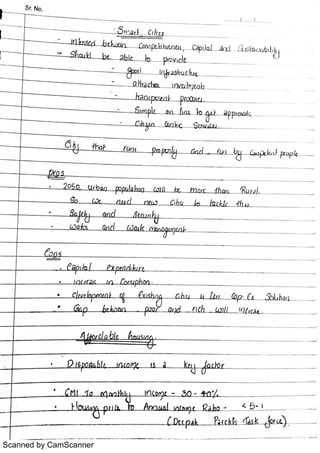 Sr. No.
Smart Cities
- interlink between Competitiveness, Capital and Sustainability
→ Should be able to provide
- good infrastructure
- attractive investments
- transparent process
- Simple on line to get approvals
- Citizen Centric Services
City that runs properly and run by Competent people
Pros
• 2050, urban population will be more than Rural.
So we need new Cities to tackle this
• Safety and Security
• Water and Waste management
Cons
• Capital expenditure
• increase in Corruption
• development of Existing cities is less Cap Ex Solution
• Gap between poor and rich will increase
Affordable housing
• Disposable income is a key factor
• EMI To monthly income - 30 - 40%
• Housing price to Annual income Ratio - < 5:1
(Deepak Parekh Task force)
Scanned by CamScanner